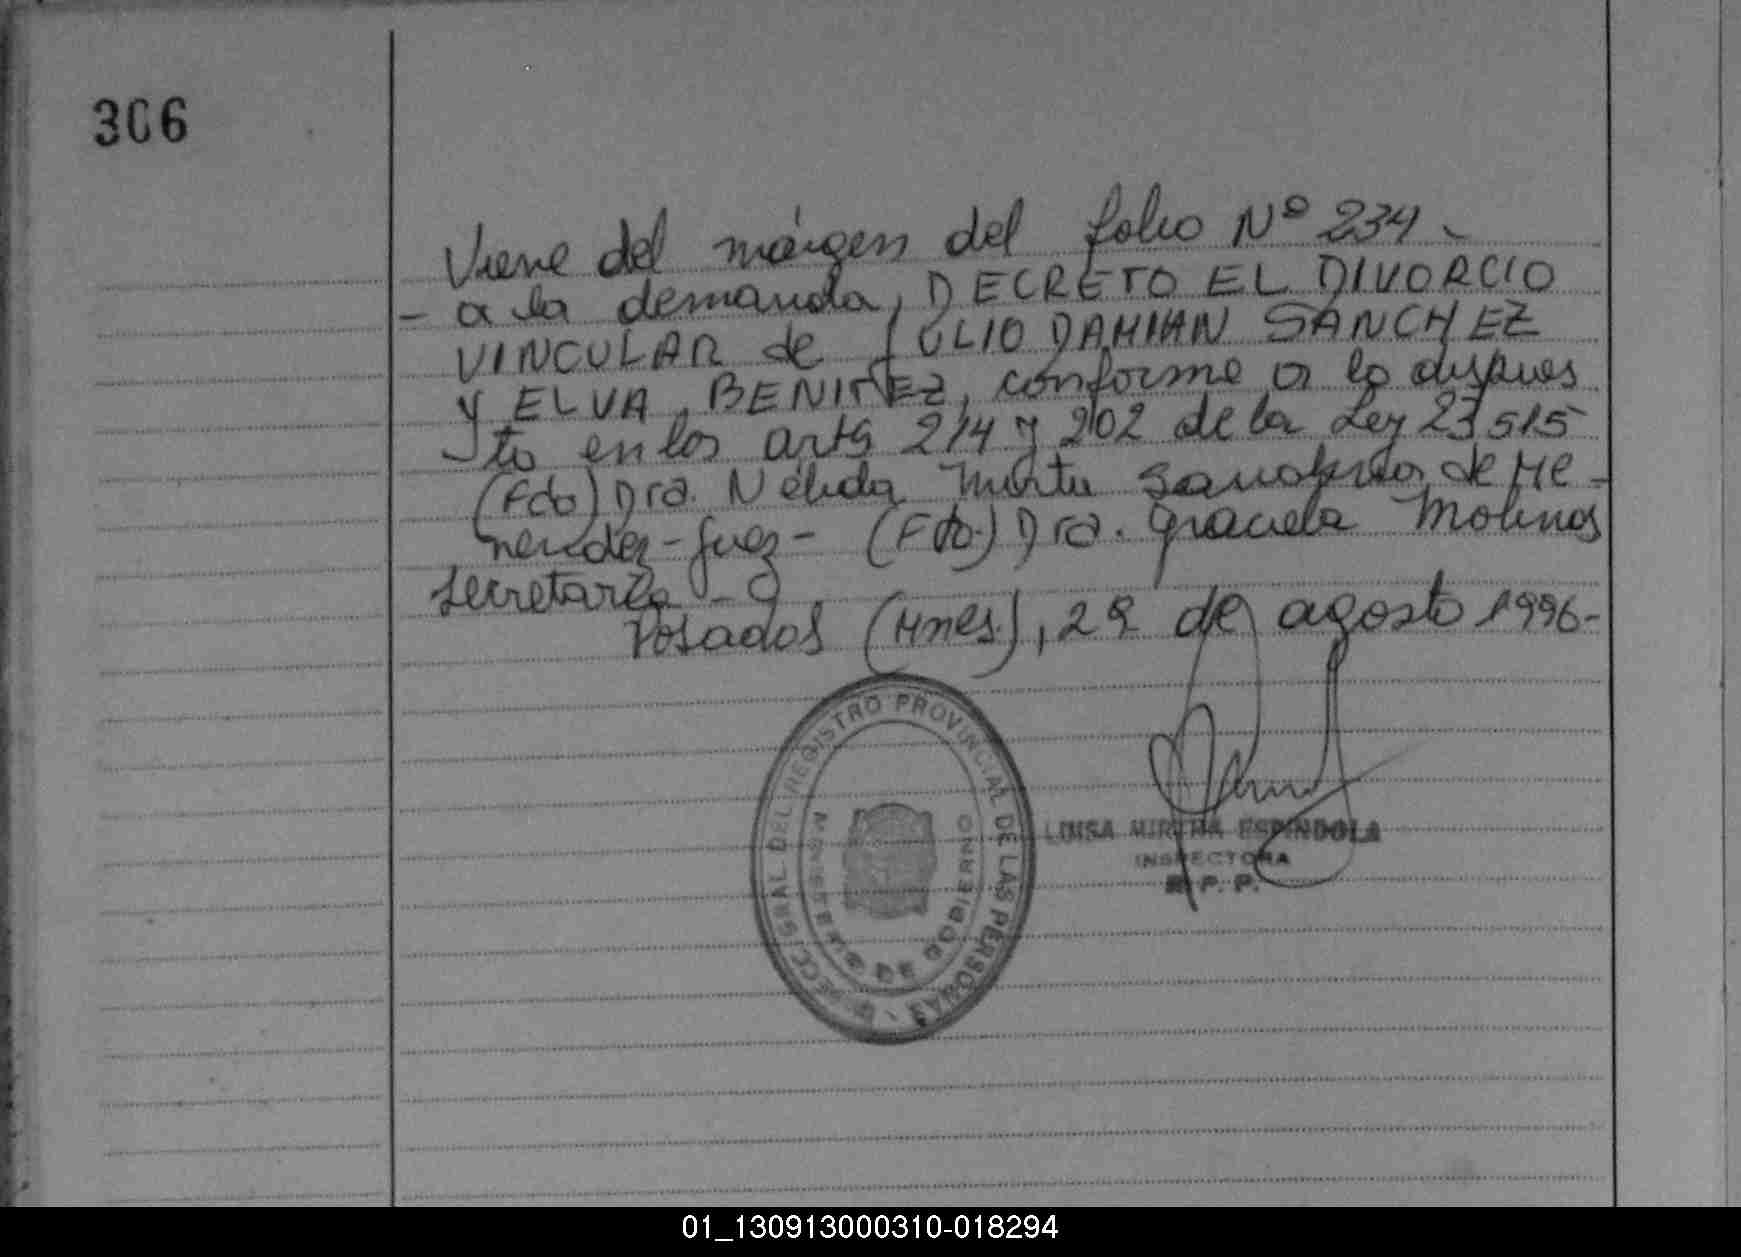 306
Viene del márgen del folio Nº 234 -
- a la demanda, DECRETO EL DIVORCIO
VINCULAR de JULIO DAMIAN SANCHEZ
Y ELVA, BENITEZ, conforme a lo dispues
to en los arts 214 y 202 de la Ley 23515
(Fdo) Dra. Nélida Mirta de Me-
nendez - Juez - (Fdo.) Dra. Graciela Molinos
Secretaria -
Posadas (Mnes.), 29 de agosto 1996-
REGISTRO PROVINCIAL DE LAS PERSONAS
MINISTERIO DE GOBIERNO
LUISA MIRTHA ESPINDOLA
INSPECTORA
R. P. P.
01_130913000310-018294